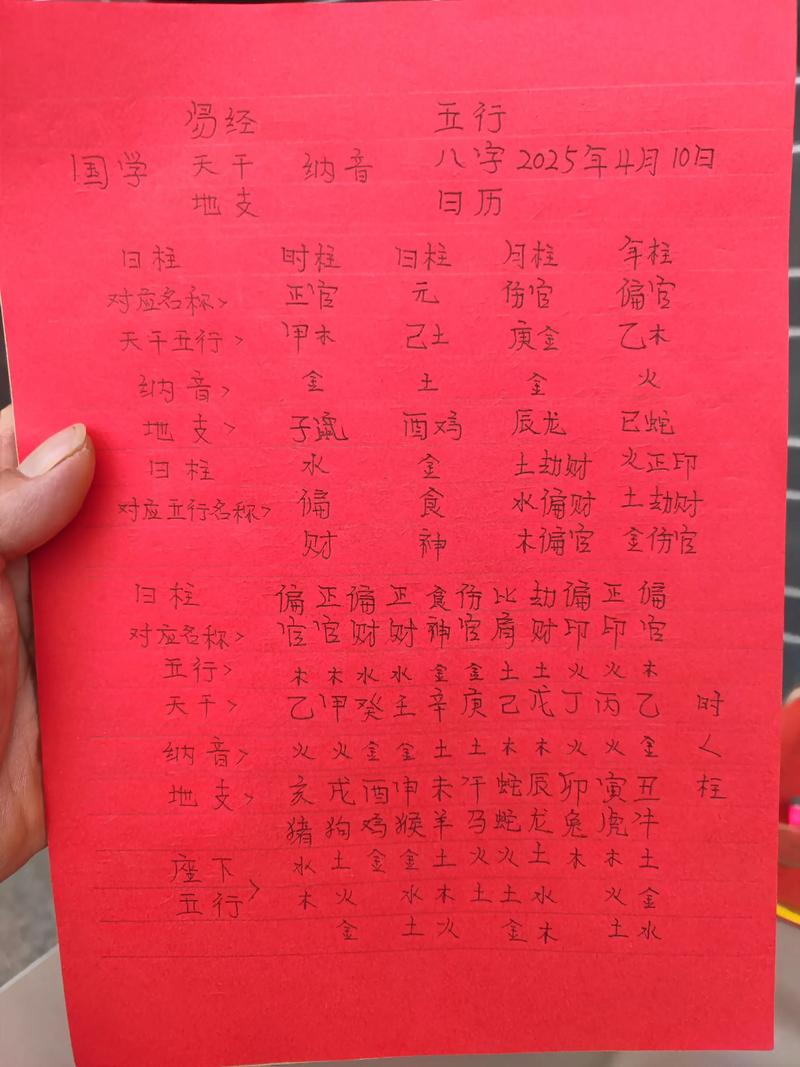 易经 五行
国学 天干 纳音 八字 2025年4月10日
地支 日历
日柱 时柱 日柱 月柱 年柱
对应名称> 正官 元 伤官 偏官
天干五行> 甲木 己土 庚金 乙木
纳音> 金 土 金 火
地支> 子 酉鸡 辰龙 巳蛇
日柱 水 金 土劫财 火正印
对应五行名称> 偏 食 水偏财 土劫财
财 神 木偏官 金伤官
日柱 偏 正 偏 正 食 伤 比 劫 偏 正 偏
对应名称> 官 官 财 财 神 官 肩 财 印 印 官
五行> 木 木 水 水 金 金 土 土 火 火 木
天干> 乙 甲 癸 壬 辛 庚 己 戊 丁 丙 乙 时
纳音> 火 火 金 金 土 土 木 木 火 火 金 く
地支> 亥 戌 酉 申 未 午 蛇 辰 卯 寅 丑 柱
猪 狗 鸡 猴 羊 马 蛇 龙 兔 虎 牛
座下 水 土 金 金 土 火 火 土 木 木 土
五行> 木 火 水 木 土 土 水 火 金
金 土 火 金 木 土 水